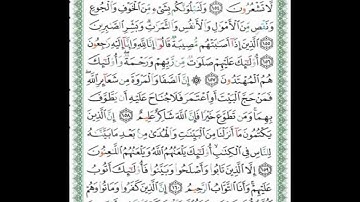 لَّا تَشْعُرُونَ ١٥٤ وَلَنَبْلُوَنَّكُم بِشَىْءٍ مِّنَ ٱلْخَوْفِ وَٱلْجُوعِ
وَنَقْصٍ مِّنَ ٱلْأَمْوَٰلِ وَٱلْأَنفُسِ وَٱلثَّمَرَٰتِ وَبَشِّرِ ٱلصَّٰبِرِينَ
١٥٥ ٱلَّذِينَ إِذَآ أَصَٰبَتْهُم مُّصِيبَةٌ قَالُوٓا۟ إِنَّا لِلَّهِ وَإِنَّآ إِلَيْهِ رَٰجِعُونَ
١٥٦ أُو۟لَٰٓئِكَ عَلَيْهِمْ صَلَوَٰتٌ مِّن رَّبِّهِمْ وَرَحْمَةٌ وَأُو۟لَٰٓئِكَ
هُمُ ٱلْمُهْتَدُونَ ١٥٧ ۞ إِنَّ ٱلصَّفَا وَٱلْمَرْوَةَ مِن شَعَآئِرِ ٱللَّهِ
فَمَنْ حَجَّ ٱلْبَيْتَ أَوِ ٱعْتَمَرَ فَلَا جُنَاحَ عَلَيْهِ أَن يَطَّوَّفَ
بِهِمَا وَمَن تَطَوَّعَ خَيْرًا فَإِنَّ ٱللَّهَ شَاكِرٌ عَلِيمٌ ١٥٨ إِنَّ ٱلَّذِينَ
يَكْتُمُونَ مَآ أَنزَلْنَا مِنَ ٱلْبَيِّنَٰتِ وَٱلْهُدَىٰ مِنۢ بَعْدِ مَا بَيَّنَّٰهُ
لِلنَّاسِ فِى ٱلْكِتَٰبِ أُو۟لَٰٓئِكَ يَلْعَنُهُمُ ٱللَّهُ وَيَلْعَنُهُمُ ٱللَّٰعِنُونَ
١٥٩ إِلَّا ٱلَّذِينَ تَابُوا۟ وَأَصْلَحُوا۟ وَبَيَّنُوا۟ فَأُو۟لَٰٓئِكَ أَتُوبُ
عَلَيْهِمْ وَأَنَا ٱلتَّوَّابُ ٱلرَّحِيمُ ١٦٠ إِنَّ ٱلَّذِينَ كَفَرُوا۟ وَمَاتُوا۟ وَهُمْ